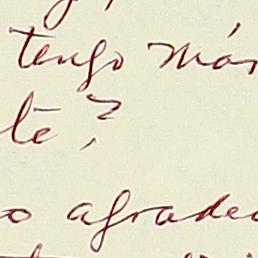 tengo más
te?
o agradec